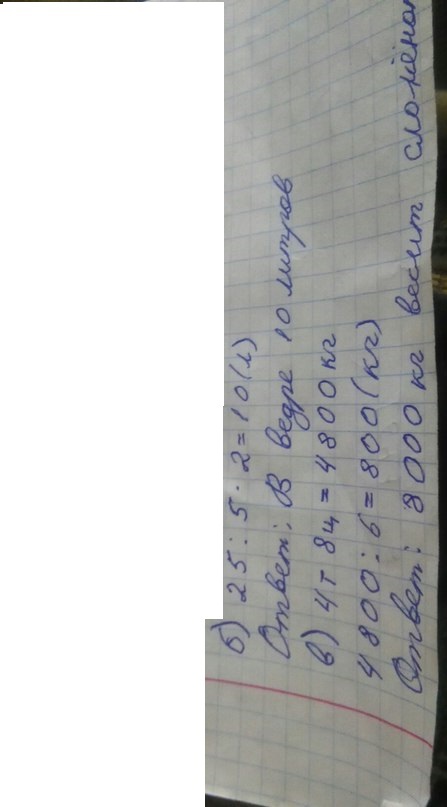 б) 25 : 5 · 2 = 10 (л)
Ответ: В ведре 10 литров
в) 4т 8ц = 4800 кг
4800 : 6 = 800 (кг)
Ответ: 8000 кг весит слонёнок